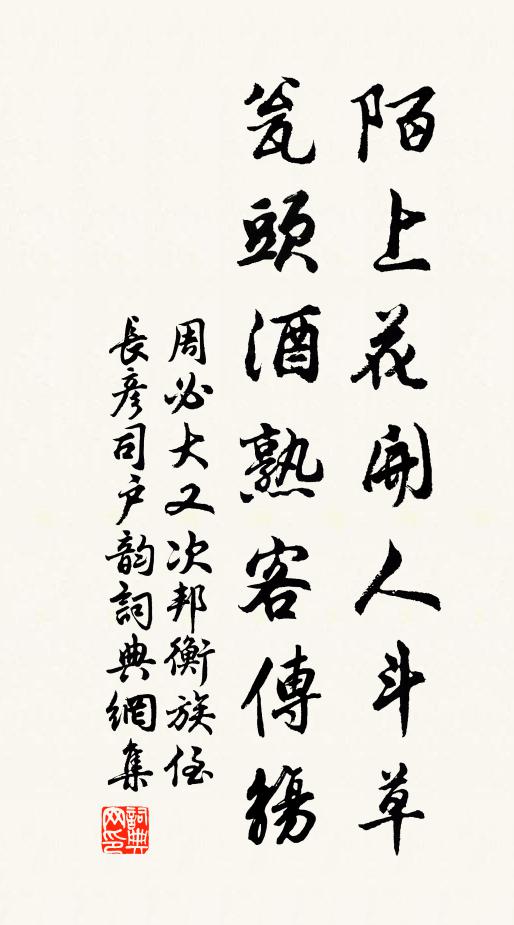 陌上花開人斗草
瓮頭酒熟客傳觴
周必大又次邦衡族侄
長彥司户韵詞典網集
詞典
网印